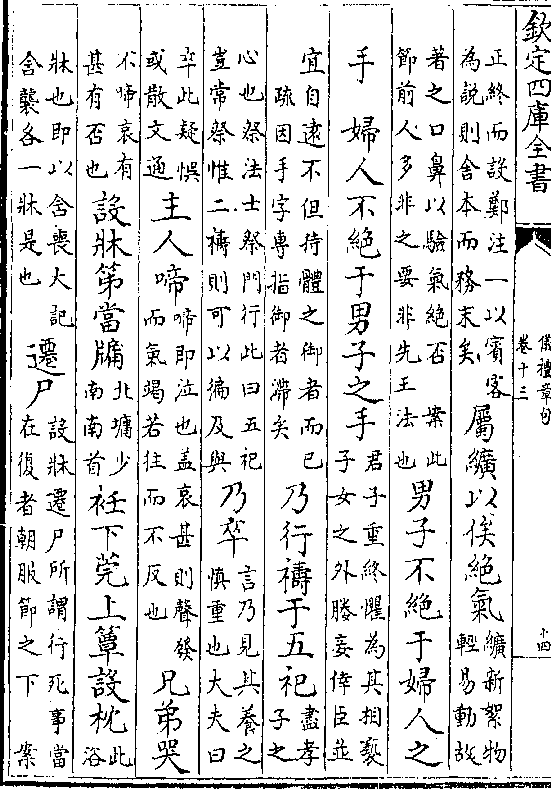 欽定四庫全書
儀禮章句
卷十三
十四
正終而設鄭注一以賓客
為說則舍本而務末矣
屬纊以俟絕氣
纊新絮物
輕易動故
著之口鼻以驗氣絕否 案此
節前人多非之要非先王法也
男子不絕于婦人之
手 婦人不絕于男子之手
君子重終懼為其相褻
子女之外媵妾倖臣並
宜自遠不但持體之御者而已
疏因手字專指御者滯矣
乃行禱于五祀
盡孝
子之
心也祭法士祭門行此曰五祀
豈常祭惟二禱則可以徧及與
乃卒
言乃見其養之
慎重也大夫曰
卒此疑悞
或散文通
主人啼
啼即泣也蓋哀甚則聲發
而氣竭若往而不反也
兄弟哭
不啼哀有
甚有否也
設牀第當牖
北墉少
南南首
衽下莞上簟設枕
此
浴
牀也即以含喪大記
含襲各一牀是也
遷尸
設牀遷尸所謂行死事當
在復者朝服節之下 案